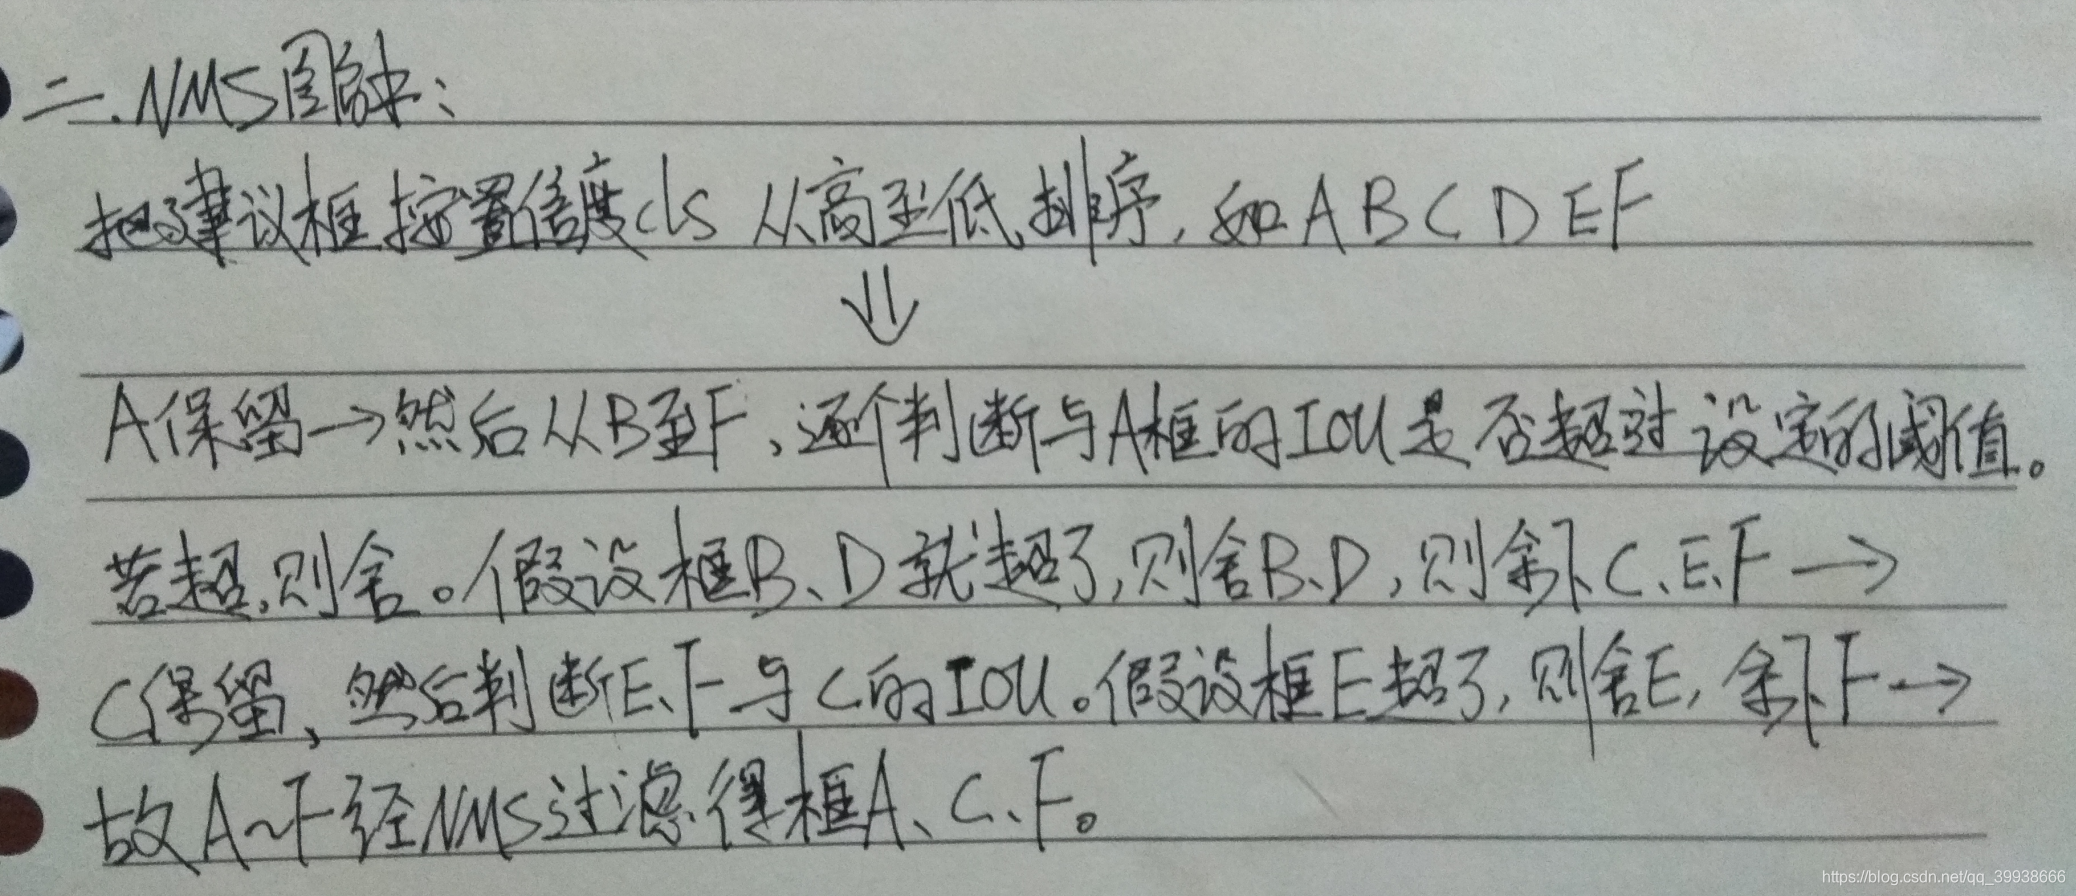 二.NMS图解:
把建议框按置信度cls 从高至低排序,如ABCDEF
⇓
A保留→然后从B至F,逐个判断与A框的IOU是否超过设定的阈值。
若超,则舍。假设框B、D就超了,则舍B、D,则余下C、E、F→
C保留、然后判断E、F与C的IOU。假设框E超了,则舍E,余下F→
故A~F经NMS过滤得框A、C、F。
https://blog.csdn.net/qq_39938666